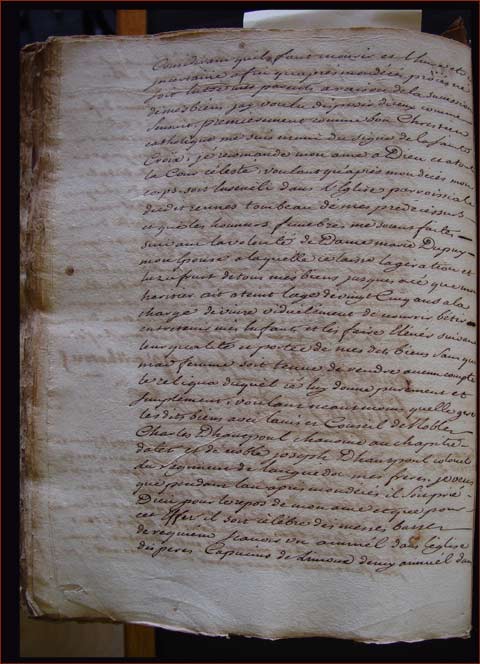 Considerant quil faut mourir et lheure est
incertaine afin quapres mon déces procès ne
soit entre mes parents a raison de la succession
de mes biens jay voulu disposer diceux comme
sensuit, premierement comme bon Chrestien
catholique me suis muni du signe de la sainte
Croix, jé recomandé mon ame a Dieu et a toute
la Cour céleste, voulant qu'après mon déces mon
corps soit enseveli dans l'Eglise parroissiale
dudit rennes tombeau de mes predecesseurs
et que les honneurs funebres me soient faits
suivant la volonté de Dame marie Dupuy
mon Epouse a laquelle je laisse la gestion et
usufruit de tous mes biens jusques a ce que mon
heritier ait ateint l'age de vingt Cinq ans a la
charge de vivre viduelement de nourrir vêtir
entretenir mes Enfants et les faire Elever suivant
leur qualité et portée de mes dits biens sans que
mad. femme soit tenue de rendre aucun compte
le reliqua duquel je luy donne purement et
simplement, voulant neanmoins quelle gere
lesdits biens avec lavis et Conseil de Nobles
Charles Dhautpoul chanoine au chapitre
dalet et de noble joseph Dhautpoul colonel
du Regiment de languedoc mes freres, je veux
que pendant lan apres mon déces il soit prié
Dieu pour le repos de mon ame et que pour
cet Effet il soit célébré des messes basses
de requiem scavoir un annuél dans l'Eglise
des peres Capucins de Limoux demy annuél dans